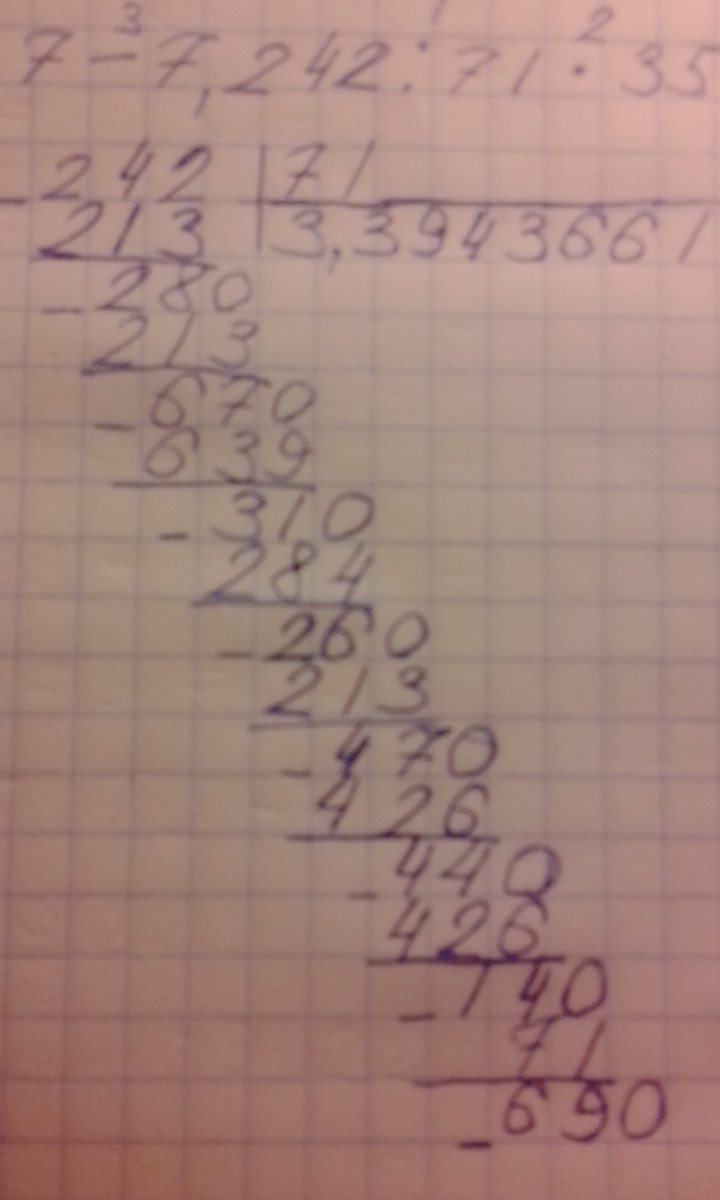 3 1 2
7 - 7,242 : 71 · 35
- 242 | 71
213 | 3,3943661
- 280
213
- 670
639
- 310
284
- 260
213
- 470
426
- 440
426
- 140
71
- 690